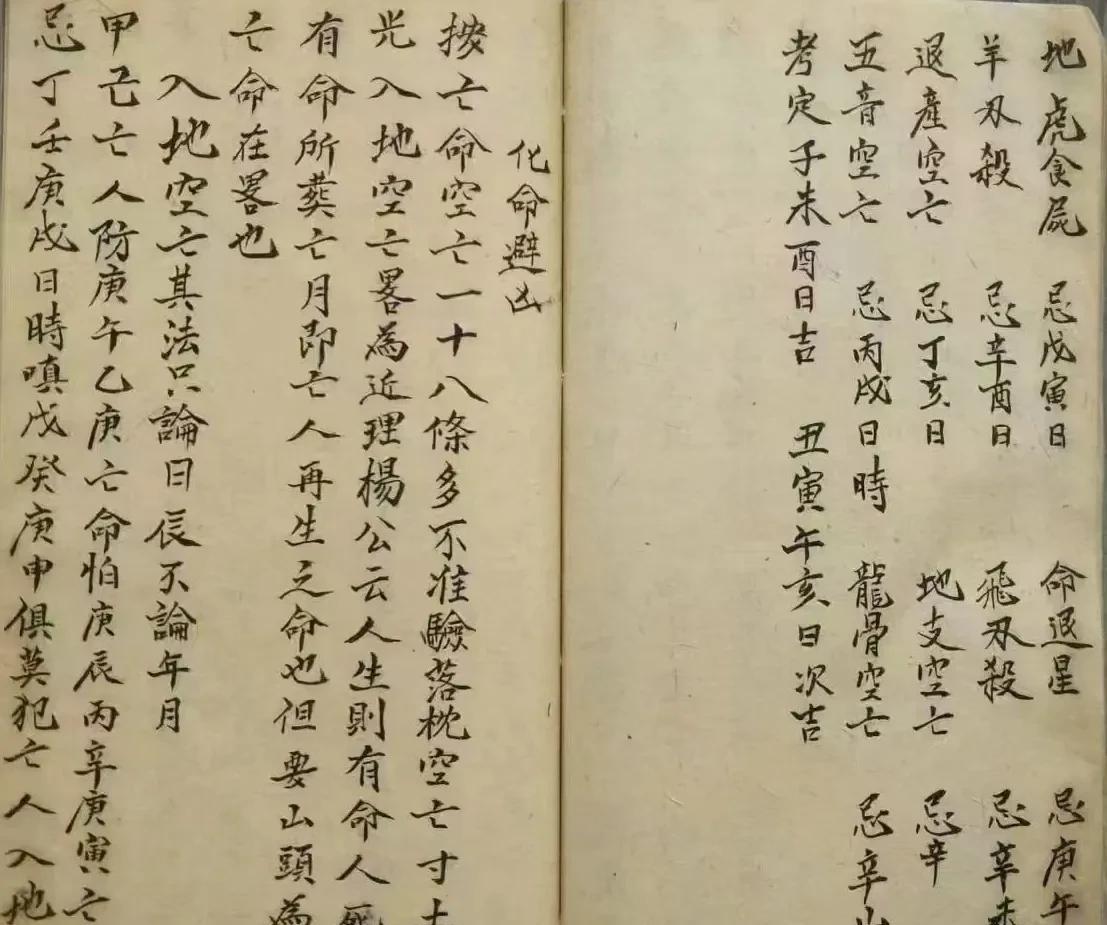 地虎食屍 忌戊寅日 命退星 忌庚午
羊刃殺 忌辛酉日 飛刃殺 忌辛未
退產空亡 忌丁亥日 地支空亡 忌辛
五音空亡 忌丙戌日時 龍骨空亡 忌辛
考定子未酉日吉 丑寅午亥日次吉
化命避凶
按亡命空亡一十八條多不准驗落枕空亡寸土
光入地空亡畧為近理楊公云人生則有命人死
有命所葬亡月即亡人再生之命也但要山頭為
亡命在畧也
入地空亡其法只論日辰不論年月
甲己亡人防庚午乙庚亡命怕庚辰丙辛庚寅亡
忌丁壬庚戌日時嗔戊癸庚申俱莫犯亡人入地